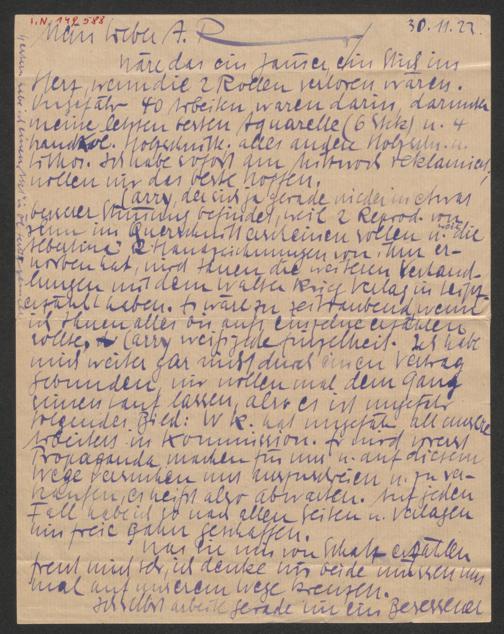 I.N. 149.588
30.11.22.
Mein lieber A. R
Wäre das ein Jammer, ein Stich ins
Herz, wenn die 2 Rollen verloren wären.
Ungefähr 40 Arbeiten waren darin, darunter
meine letzten besten Aquarelle (6 Stk) u. 4
Holzschnitte. alles andere Holzschn. u.
Lithos. Ich habe sofort am Mittwoch reklamiert,
wollen wir das beste hoffen.
Carry, der sich ja gerade wieder in etwas
besserer Stimmung befindet, weil 2 Reprod. von
ihm im Querschnitt erscheinen sollen u. die
Albertina 2 Handzeichnungen von ihm er-
worben hat, wird Ihnen die weiteren Verhand-
lungen mit dem Walter Krieg Verlag in
erzählt haben. Es wäre zu zeitraubend, wenn
ich Ihnen alles bis aufs einzelne erzählen
wollte. Carry weiß jede Einzelheit. Ich habe
mich weiter gar nicht durch einen Vertrag
gebunden, wir wollen mal dem Gang
seinen Lauf lassen, also es ist ungefähr
folgendes. W. K. hat ungefähr all unsere
Arbeiten in Kommission. Er wird vorerst
Propaganda machen für uns u. auf diesem
Wege versuchen uns u. zu ver-
kaufen, es heißt also abwarten. Auf jeden
Fall habe ich so nach allen Seiten u. Verlagen
hin freie Bahn geschaffen.
Was Sie mir von Schatz erzählen
freut mich sehr, ich denke wir beide müssen uns
mal auf unserem Wege kreuzen.
Ich selbst arbeite gerade wie ein Besessener